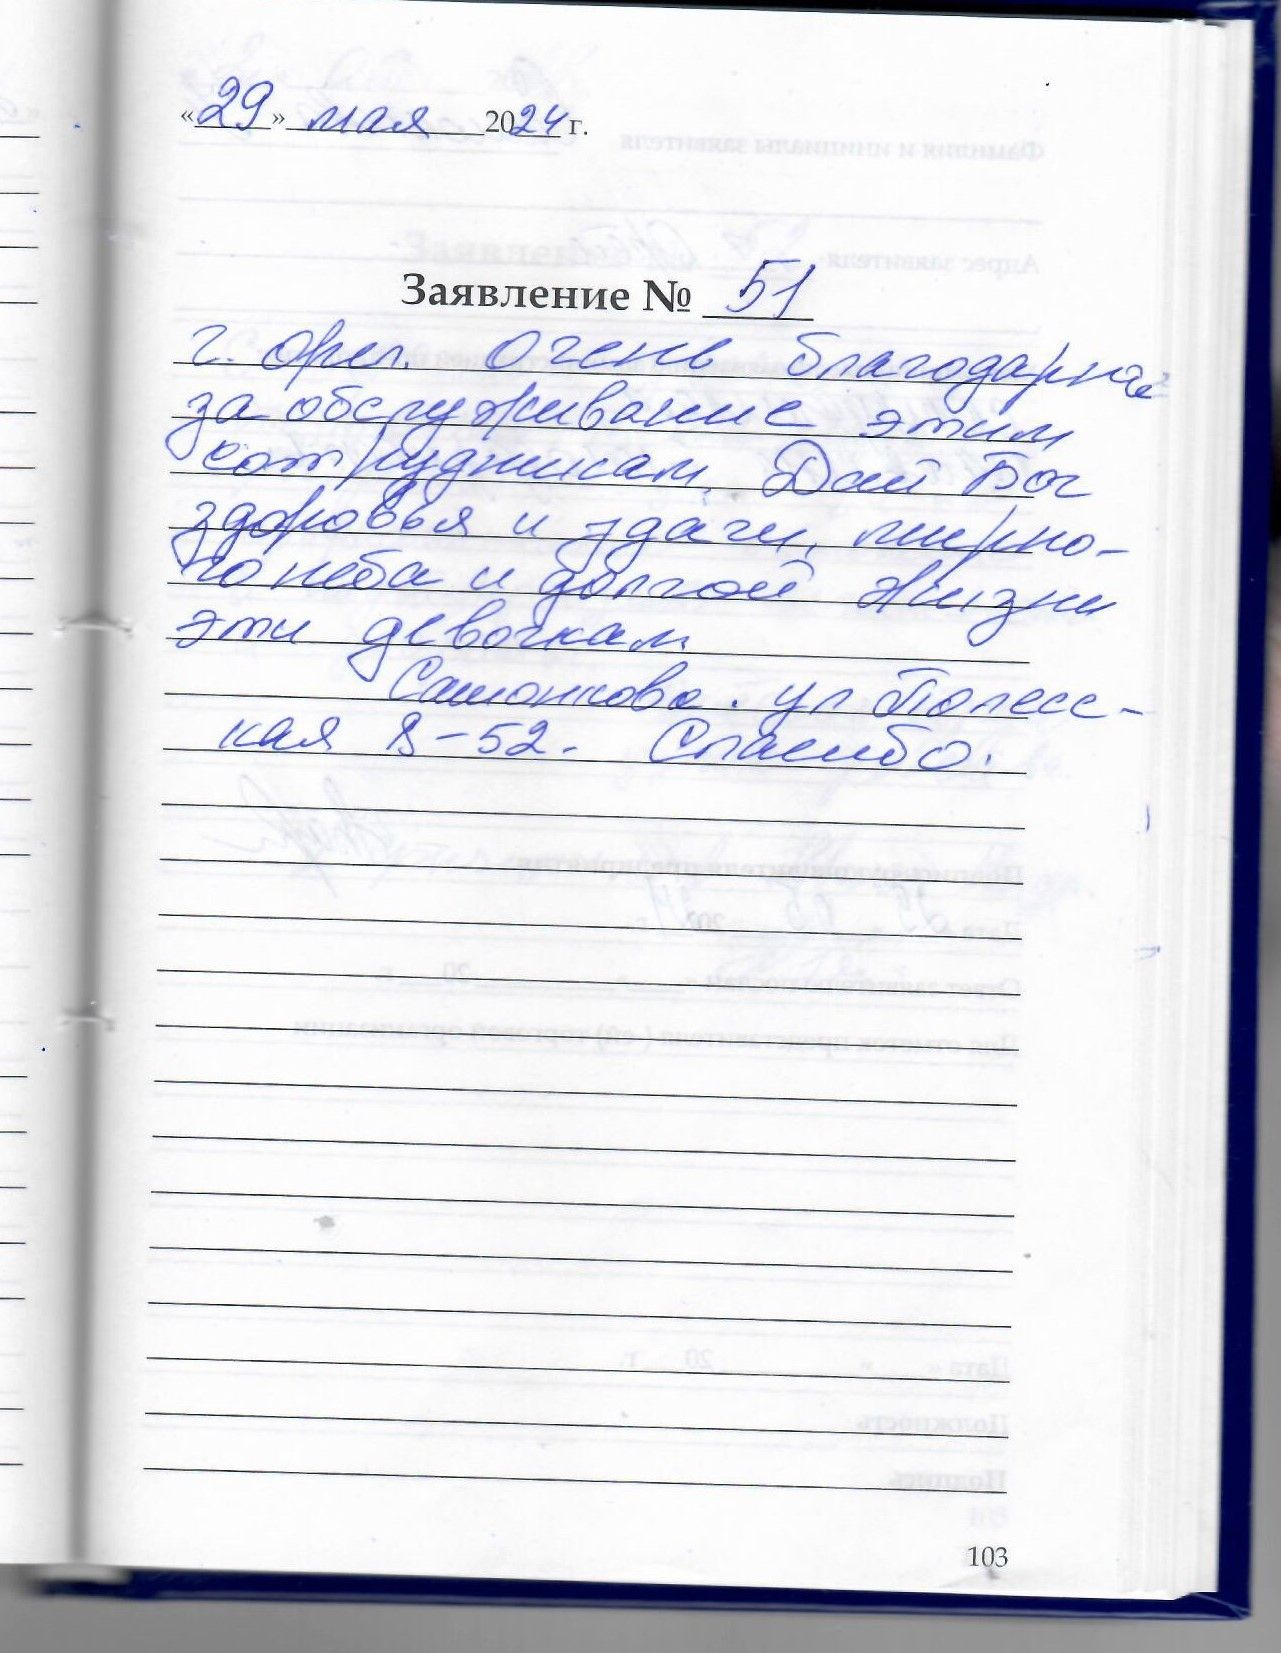 «29» мая 2024 г.
Заявление № 51
г. Орел. Очень благодарна
за обслуживание этим
сотрудникам. Дай Бог
здоровья и удачи, мирно-
го неба и долгой жизни
эти девочкам
ул Полесс-
кая 8-52. Спасибо.
103